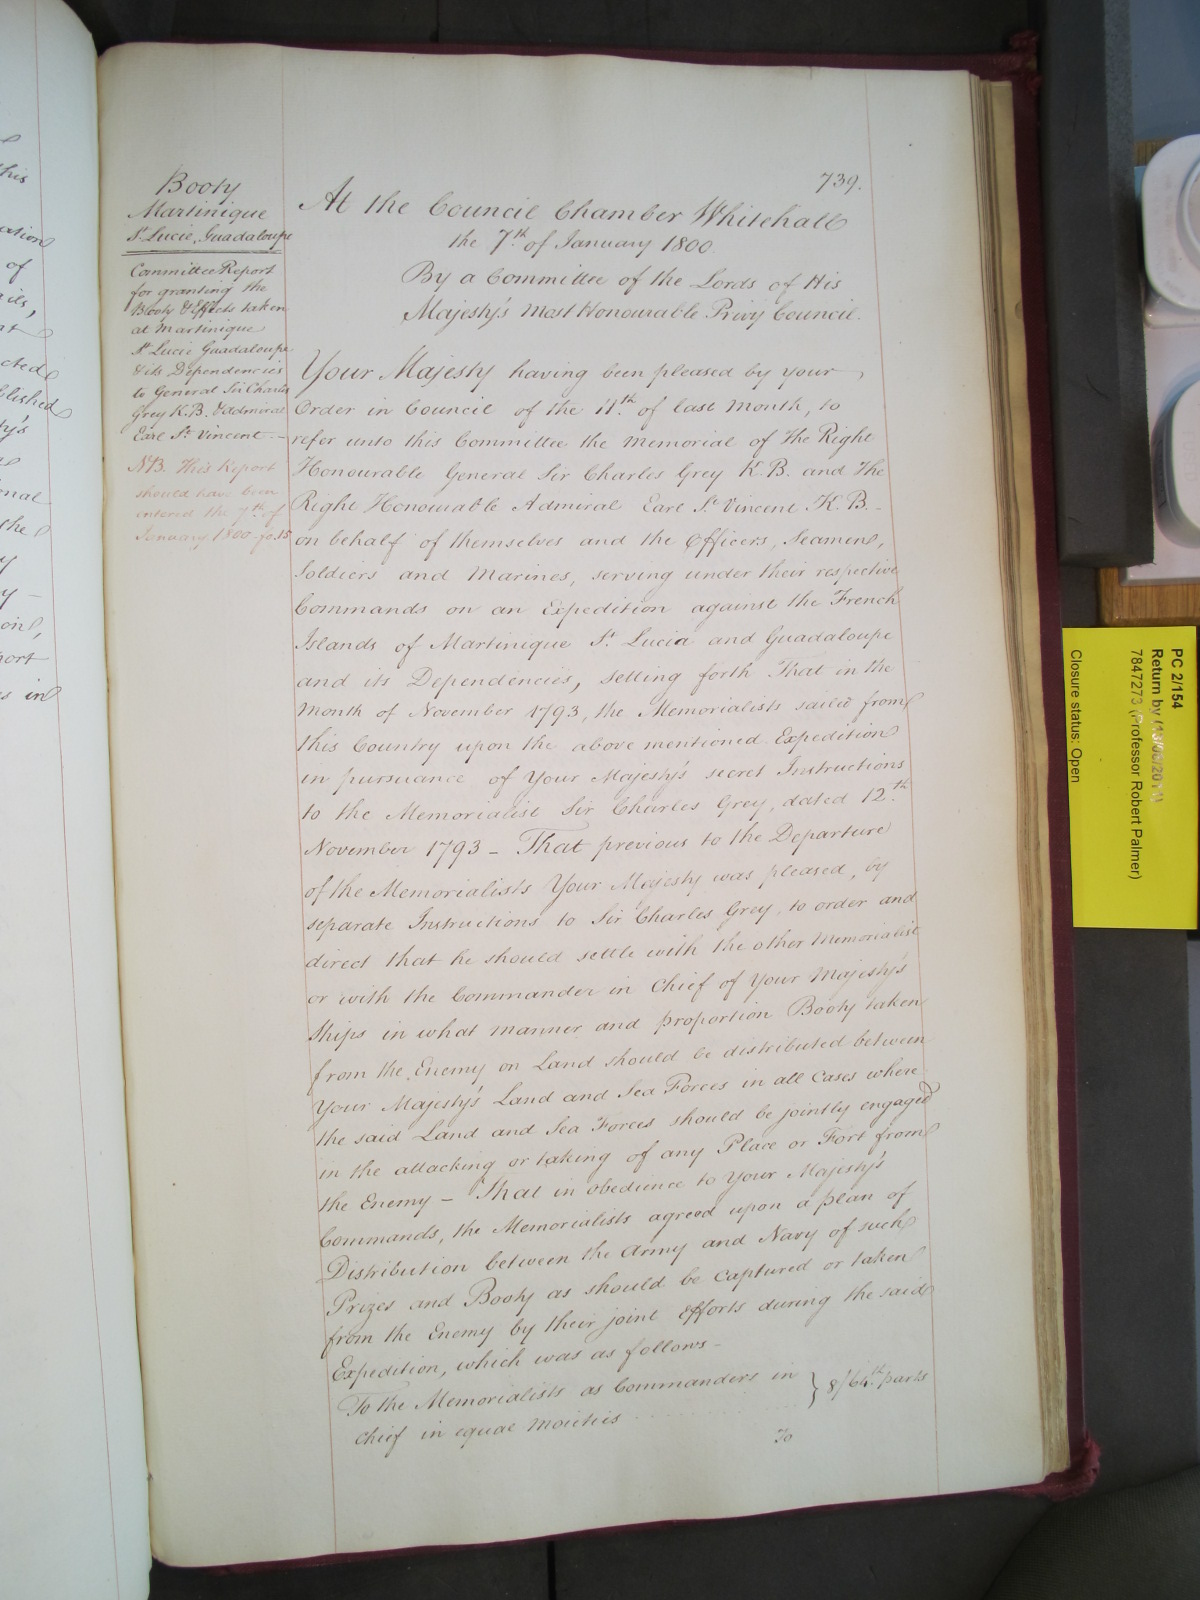 739.
Booty
Martinique
St. Lucie, Guadaloupe
Committee Report
for granting the
Booty & Effects taken
at Martinique
St. Lucie Guadaloupe
& its Dependencies
to General Sir Charles
Grey K.B. & Admiral
Earl St. Vincent —
NB. This Report
should have been
entered the 7th. of
January 1800 fo. 15
At the Council Chamber Whitehall
the 7th. of January 1800
By a Committee of the Lords of His
Majesty's most Honourable Privy Council.
Your Majesty having been pleased by your
Order in Council of the 11th. of last Month, to
refer unto this Committee the Memorial of The Right
Honourable General Sir Charles Grey K.B. and The
Right Honourable Admiral Earl St. Vincent K.B. -
on behalf of themselves and the Officers, Seamen,
Soldiers and Marines, serving under their respective
Commands on an Expedition against the French
Islands of Martinique St. Lucia and Guadaloupe
and its Dependencies, setting forth That in the
Month of November 1793, the Memorialists sailed from
this Country upon the above mentioned Expedition
in pursuance of Your Majesty's secret Instructions
to the Memorialist Sir Charles Grey, dated 12th.
November 1793 – That previous to the Departure
of the Memorialists Your Majesty was pleased, by
separate Instructions to Sir Charles Grey, to order and
direct that he should settle with the other Memorialist
or with the Commander in Chief of Your Majesty's
Ships in what manner and proportion Booty taken
from the Enemy on Land should be distributed between
Your Majesty's Land and Sea Forces in all Cases where
the said Land and Sea Forces should be jointly engaged
in the attacking or taking of any Place or Fort from
the Enemy – That in obedience to Your Majesty's
Commands, the Memorialists agreed upon a plan of
Distribution between the Army and Navy of such
Prizes and Booty as should be captured or taken
from the Enemy by their joint efforts during the said
Expedition, which was as follows –
To the Memorialists as Commanders in
Chief in equal moieties } 8/64th. parts
To
his
ation
of
cted
blished
ty's
onal
the
y
y –
port
s in
PC 2/154
Return by (13/08/2011)
7847273 (Professor Robert Palmer)
Closure status: Open